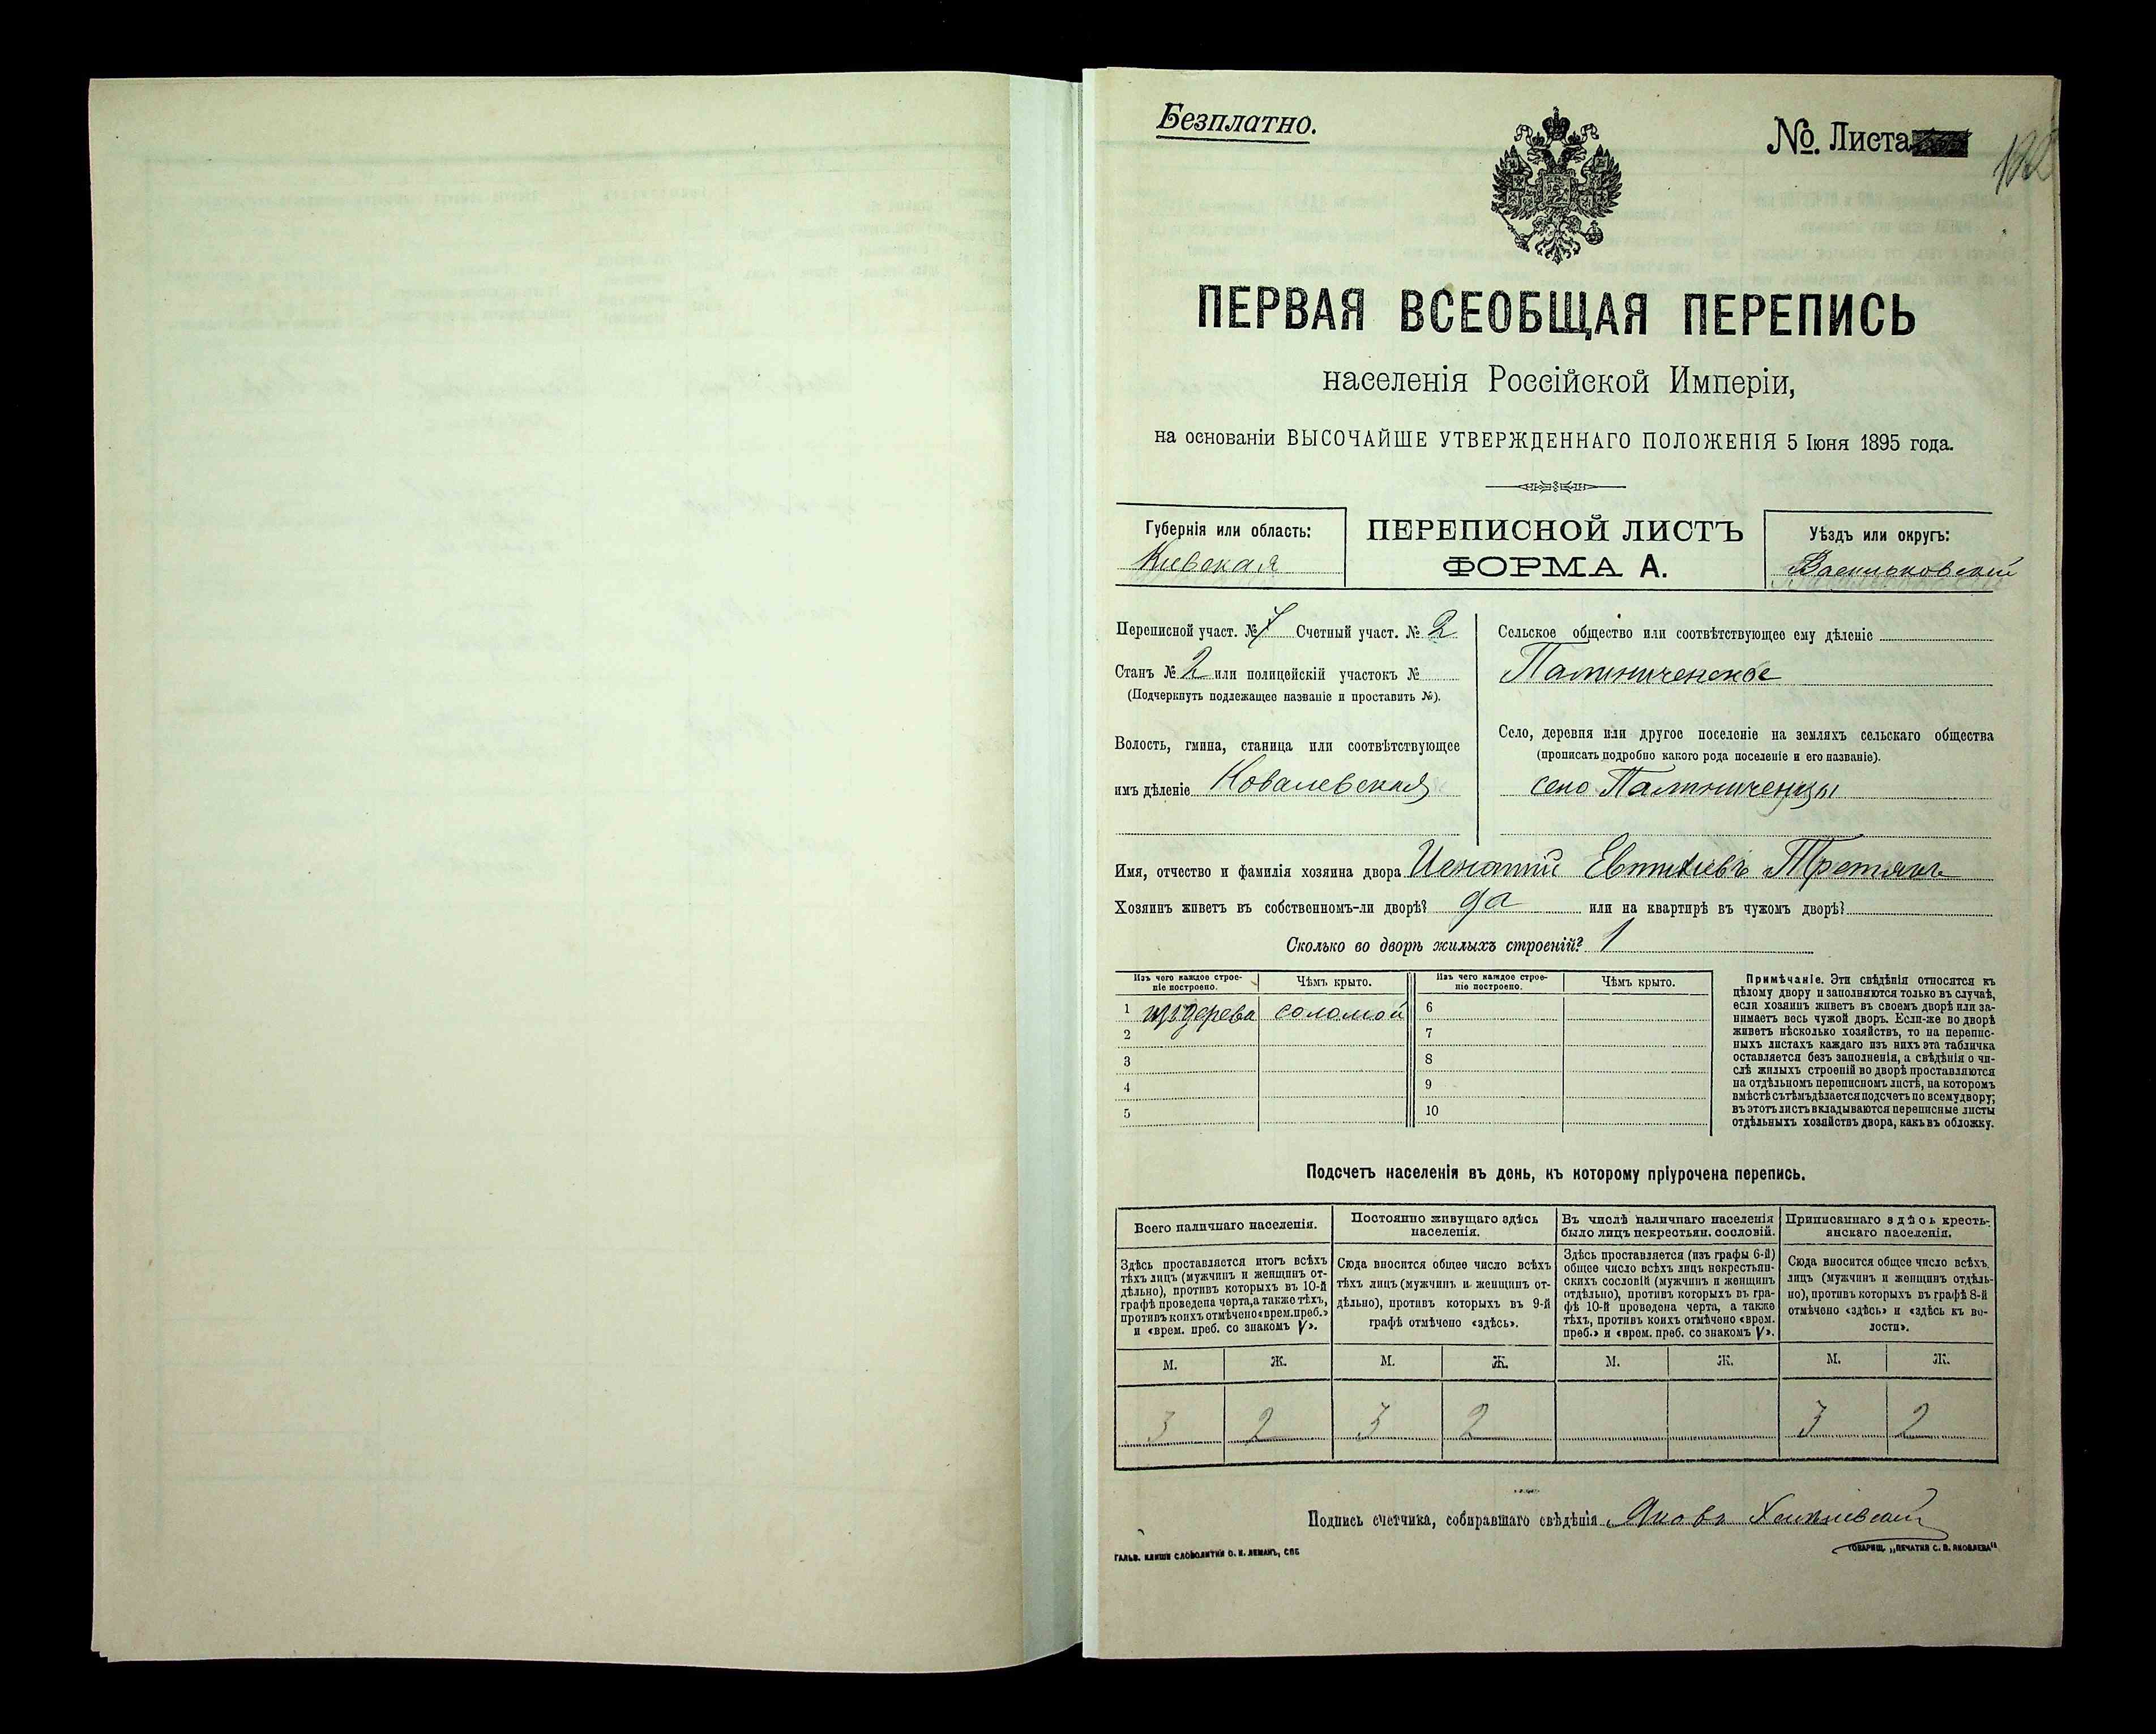 Безплатно.
№. Листа
ПЕРВАЯ ВСЕОБЩАЯ ПЕРЕПИСЬ
населенія Россійской Имперіи,
на основаніи ВЫСОЧАЙШЕ УТВЕРЖДЕННАГО ПОЛОЖЕНІЯ 5 Іюня 1895 года.
Губернія или область:
Кіевская
ПЕРЕПИСНОЙ ЛИСТЪ
ФОРМА А.
Уѣздъ или округъ:
Васильковскій
Переписной участ. № 7 Счетный участ. № 2
Станъ № 2 или полицейскій участокъ №
(Подчеркнуть подлежащее названіе и проставить №).
Волость, гмина, станица или соотвѣтствующее
имъ дѣленіе Ковалевская
Сельское общество или соотвѣтствующее ему дѣленіе
Палиниченское
Село, деревня или другое поселеніе на земляхъ сельскаго общества
(прописать подробно какого рода поселеніе и его названіе).
село Палиниченцы
Имя, отчество и фамилія хозяина двора Игнатій Евтихіевъ Третякъ
Хозяинъ живетъ въ собственномъ-ли дворѣ? да или на квартирѣ въ чужомъ дворѣ?
Сколько во дворѣ жилыхъ строеній? 1
Изъ чего каждое строе-
ніе построено.
Чѣмъ крыто.
Изъ чего каждое строе-
ніе построено.
Чѣмъ крыто.
1 изъ дерева соломой 6
2 7
3 8
4 9
5 10
Примѣчаніе. Эти свѣдѣнія относятся къ
цѣлому двору и заполняются только въ случаѣ,
если хозяинъ живетъ въ своемъ дворѣ или за-
нимаетъ весь чужой дворъ. Если-же во дворѣ
живетъ нѣсколько хозяйствъ, то на перепис-
ныхъ листахъ каждаго изъ нихъ эта табличка
оставляется безъ заполненія, а свѣдѣнія о чи-
слѣ жилыхъ строеній во дворѣ проставляются
на отдѣльномъ переписномъ листѣ, на которомъ
вмѣстѣ съ тѣмъ дѣлается подсчетъ по всему двору;
въ этотъ листъ вкладываются переписные листы
отдѣльныхъ хозяйствъ двора, какъ въ обложку.
Подсчетъ населенія въ день, къ которому пріурочена перепись.
Всего наличнаго населенія.
Здѣсь проставляется итогъ всѣхъ
тѣхъ лицъ (мужчинъ и женщинъ от-
дѣльно), противъ которыхъ въ 10-й
графѣ проведена черта, а также тѣхъ,
противъ коихъ отмѣчено «врем. преб.»
и «врем. преб. со знакомъ V».
Постоянно живущаго здѣсь
населенія.
Сюда вносится общее число всѣхъ
тѣхъ лицъ (мужчинъ и женщинъ от-
дѣльно), противъ которыхъ въ 9-й
графѣ отмѣчено «здѣсь».
Въ числѣ наличнаго населенія
было лицъ некрестьян. сословій.
Здѣсь проставляется (изъ графы 6-й)
общее число всѣхъ лицъ некрестьян-
скихъ сословій (мужчинъ и женщинъ
отдѣльно), противъ которыхъ въ гра-
фѣ 10-й проведена черта, а также
тѣхъ, противъ коихъ отмѣчено «врем.
преб.» и «врем. преб. со знакомъ V».
Приписаннаго здѣсь кресть-
янскаго населенія.
Сюда вносится общее число всѣхъ
лицъ (мужчинъ и женщинъ отдѣль-
но), противъ которыхъ въ графѣ 8-й
отмѣчено «здѣсь» и «здѣсь къ во-
лости».
М. Ж. М. Ж. М. Ж. М. Ж.
3 2 3 2 3 2
Подпись счетчика, собиравшаго свѣдѣнія Яковъ
ГАЛЬВ. КЛИШЕ СЛОВОЛИТНИ О. И. ЛЕМАНЪ, СПБ
ТОВАРИЩ. „ПЕЧАТНЯ С. П. ЯКОВЛЕВА“